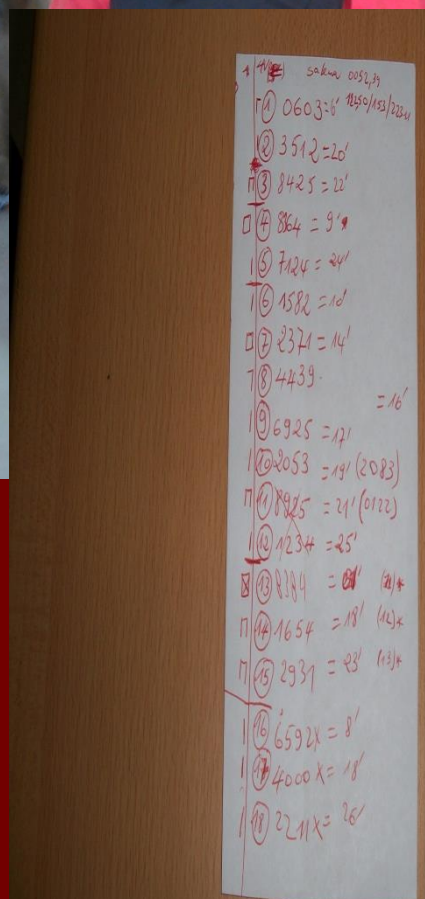 0052,39
① 0603=6'
② 3512=20'
③ 8425=22'
④ 8364=9'
⑤ 7124=24'
⑥ 1582=10'
⑦ 2371=14'
⑧ 4439
=16'
⑨ 6925=17'
⑩ 2053=19' (2083)
⑪ 8925=21' (0122)
⑫ 1234=25'
⑬ 8384 =
⑭ 1654 =18' (12)*
⑮ 2931 =23' (13)*
⑯ 6592X=8'
⑰ 4000X=18'
⑱ 2211X=26'